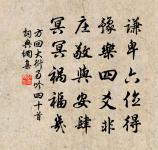 謙卑六位得
豫樂四爻非
庄敬與安肆
冥冥禍福幾
方回大衍易吟四十首
詞典網集